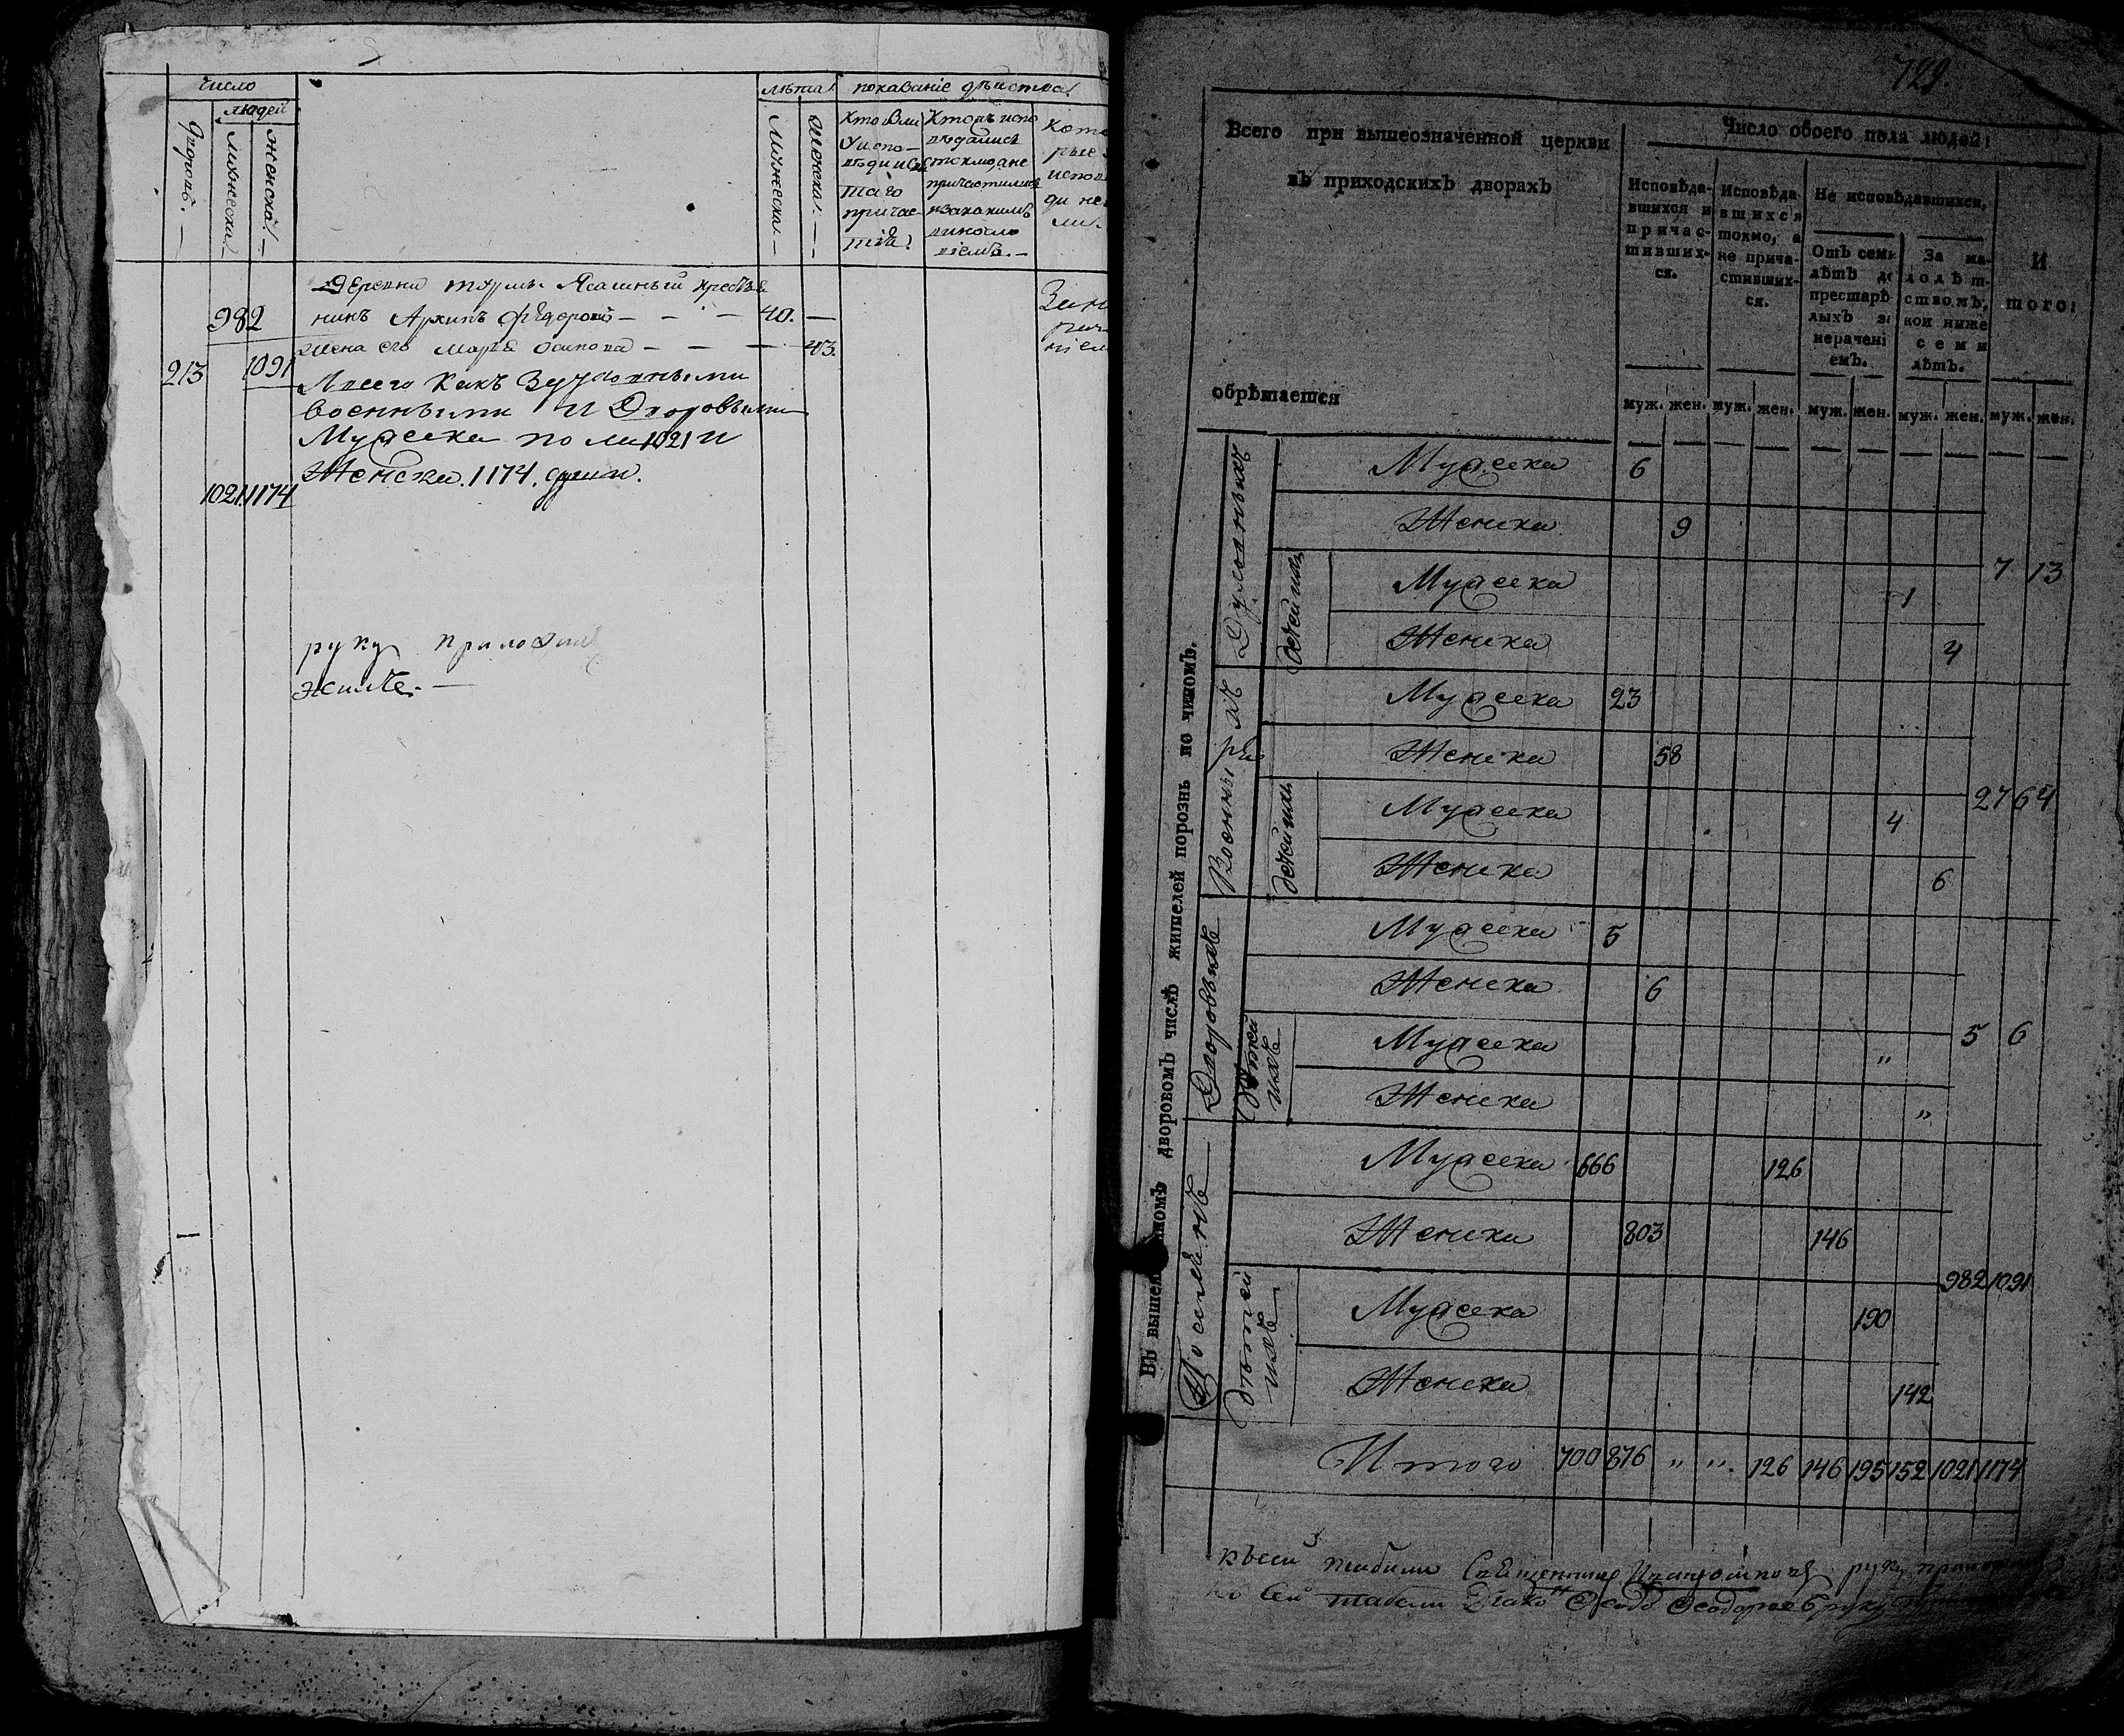 число
людей
дворовъ.
мужеска
женска.
лѣта.
Мужеская
Женска.
показание дѣиства.
Кто были
у испо-
вѣди и с
таго
причас-
тїя.
Кто испо
вѣдались
токмо, а не
причастились
и за какимъ
винословіемъ.
деревни Ясашный крестья
982 нинъ Архипъ Ѳедоровъ — 40. —
жена его Марья Осипова — 43.
213 1091
Всего какъ з Духовными
военными и Дворовыми
Мужеска полы 1021 и
Женска. 1174. души.
1021 1174
руку приложилъ
729
Всего при вышеозначенной церкви
въ приходскихъ дворахъ
обрѣтается
Число обоего пола людей:
Исповѣда-
вшихся и
причас-
тивших-
ся.
Исповѣда
вшихся
токмо, а
не прича-
стивших-
ся.
Не исповѣдавшихся,
Отъ семи
лѣтъ до
престарѣ
лыхъ за
нерачені
емъ.
За ма-
лолѣт-
ствомъ,
кои ниже
семи
лѣтъ.
И
того:
муж. жен. муж. жен. муж. жен. муж. жен. муж. жен.
дворовомъ числѣ жителей порознь по чиномъ.
Духовныхъ
Мужеска 6
Женска 9
детей ихъ
Мужеска 1
7 13
Женска 4
Военныхъ
Мужеска 23
Женска 58
детей ихъ
Мужеска 4
27 64
Женска 6
Дворовыхъ
Мужеска 5
Женска 6
дѣтей ихъ
Мужеска „
5 6
Женска „
Поселянъ
Мужеска 666 126
Женска 803 146
дѣтей ихъ
982 1091
Мужеска 190
Женска 142
Итого 700 876 „ „ 126 146 195 152 1021 1174
къ сей табели Священникъ руку
къ сей табели Диаконъ Ѳеодоровъ руку